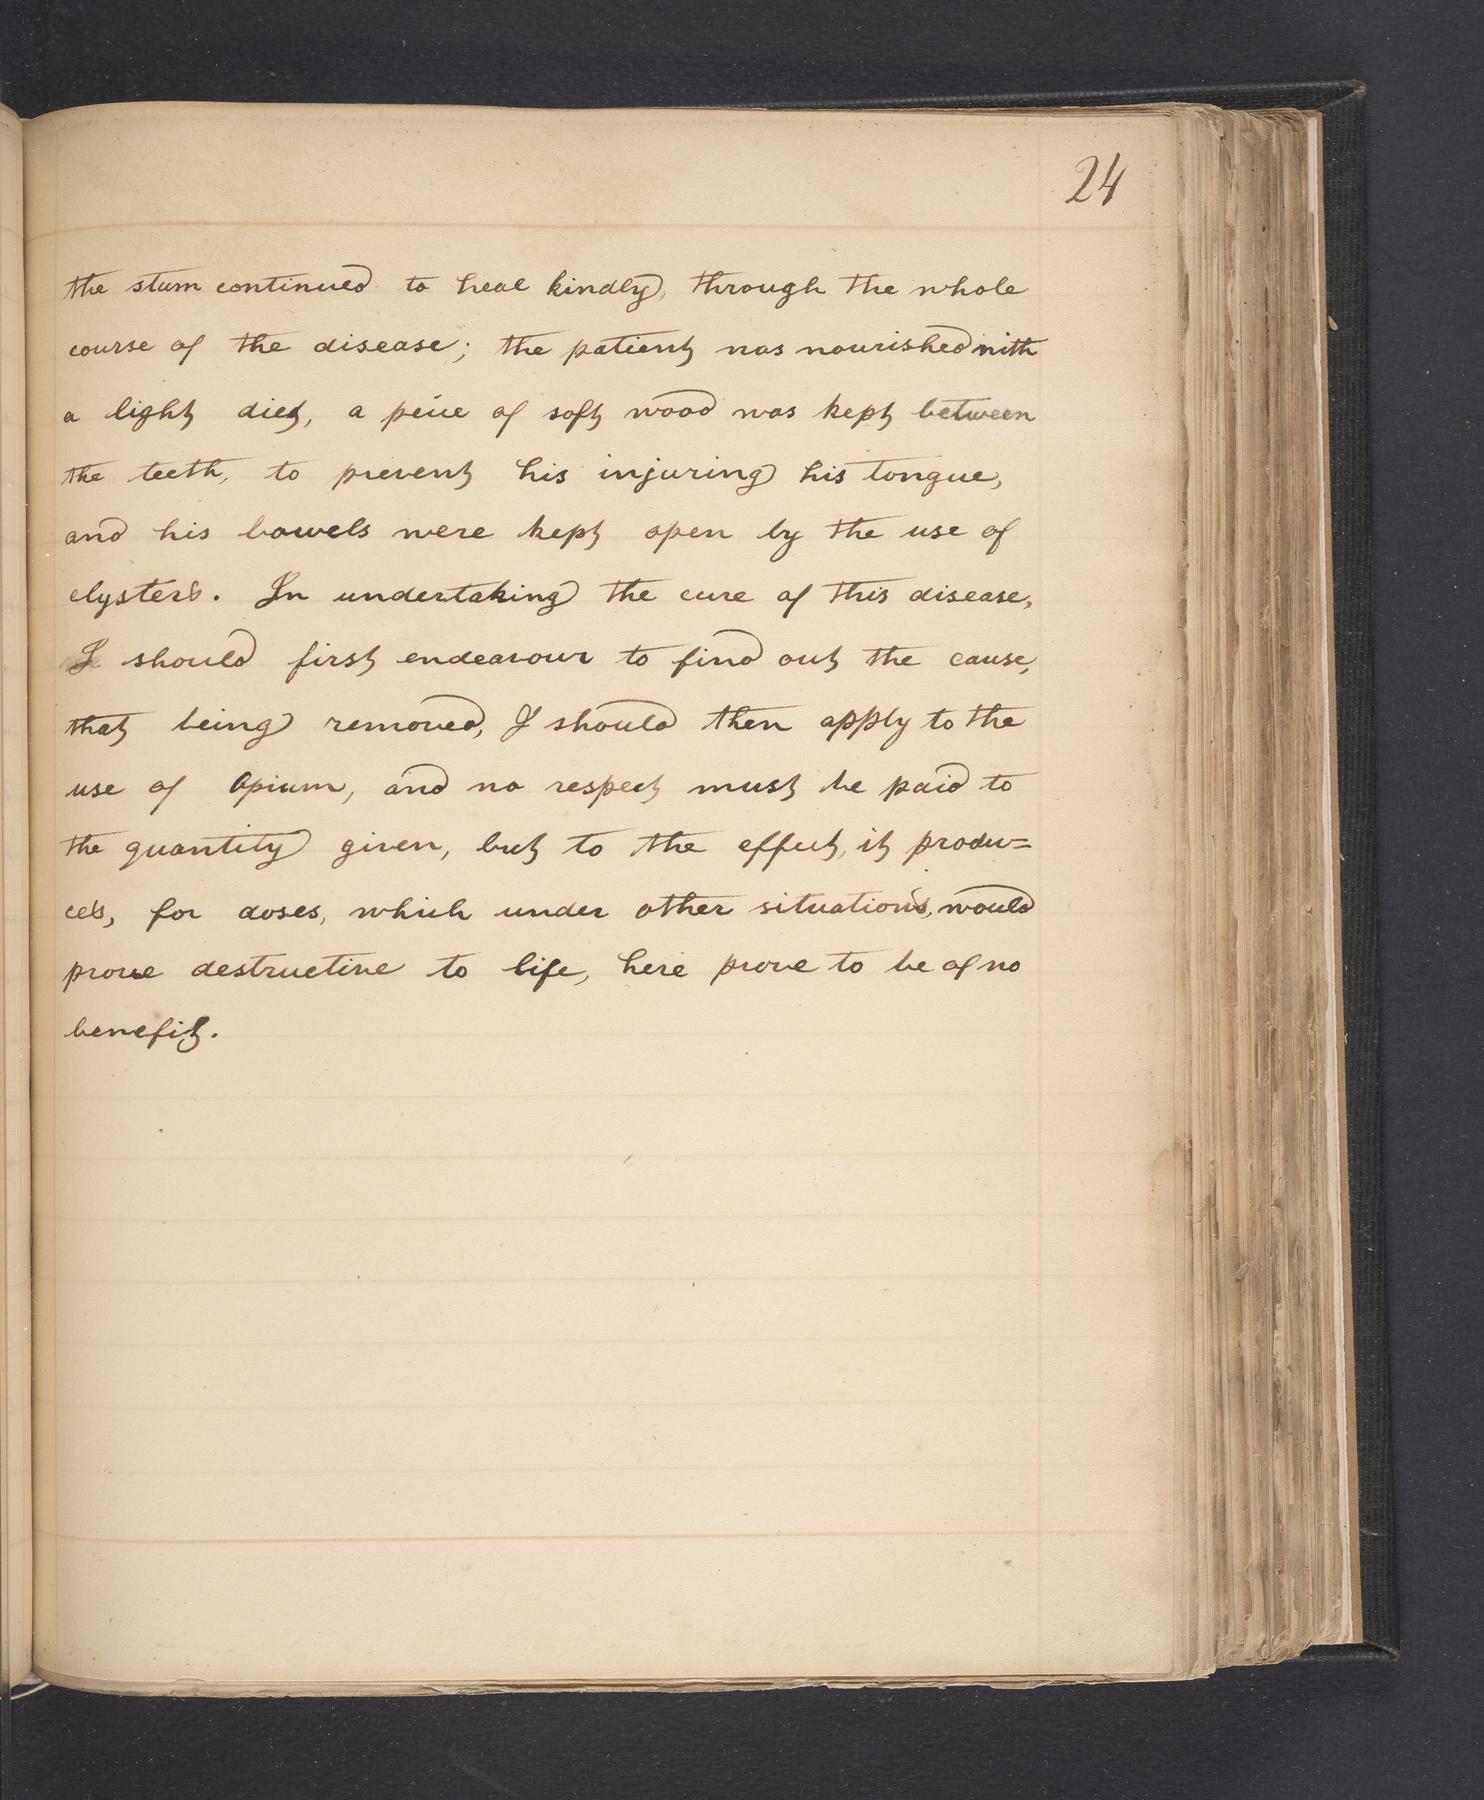 24
the stum continued to heal kindly, through the whole
course of the disease; the patient was nourished with
a light diet, a peice of soft wood was kept between
the teeth, to prevent his injuring his tongue,
and his bowels were kept open by the use of
clysters. In undertaking the cure of this disease,
I should first endeavour to find out the cause,
that being removed, I should then apply to the
use of Opium, and no respect must be paid to
the quantity given, but to the effect, it produ=
ces, for doses, which under other situations, would
prove destructive to life, here prove to be of no
benefit.